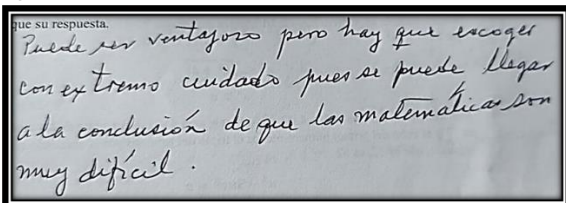 que su respuesta.
Puede ser ventajoso pero hay que escoger
con extremo cuidado pues se puede llegar
a la conclusión de que las matemáticas son
muy difícil.